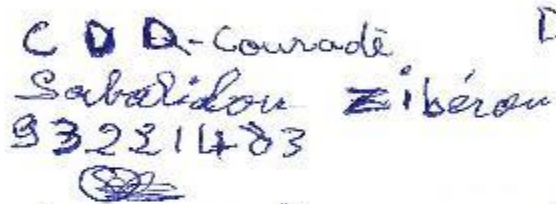 CDD-Couradè D
Sabalidou Zibérou
93221483